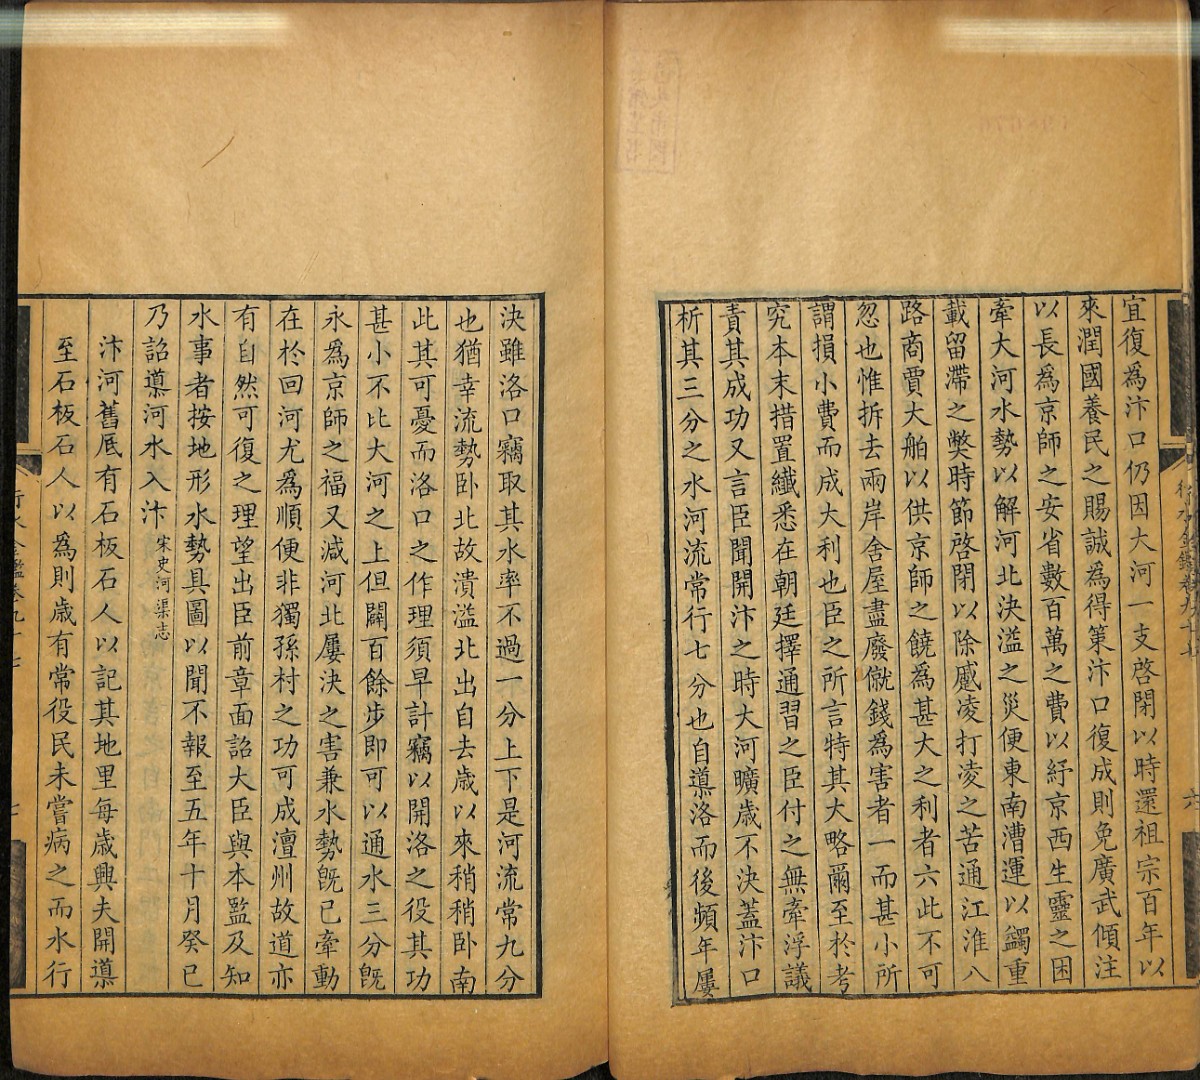 宜復為汴口仍因大河一支啓閉以時還祖宗百年以
來潤國養民之賜誠為得策汴口復成則免廣武傾注
以長為京師之安省數百萬之費以紓京西生靈之困
牽大河水勢以解河北決溢之災便東南漕運以蠲重
載留滯之獘時節啓閉以除蹙凌打凌之苦通江淮八
路商賈大舶以供京師之饒為甚大之利者六此不可
忽也惟拆去兩岸舍屋盡廢僦錢為害者一而甚小所
謂損小費而成大利也臣之所言特其大略爾至於考
究本末措置纖悉在朝廷擇通習之臣付之無牽浮議
責其成功又言臣聞開汴之時大河曠歳不決蓋汴口
析其三分之水河流常行七分也自導洛而後頻年屢
行水金鑑卷九十七
六
決雖洛口竊取其水率不過一分上下是河流常九分
也猶幸流勢卧北故潰溢北出自去歳以來稍稍卧南
此其可憂而洛口之作理須早計竊以開洛之役其功
甚小不比大河之上但闢百餘步即可以通水三分既
永為京師之福又減河北屢決之害兼水勢既已牽動
在於回河尤為順便非獨孫村之功可成澶州故道亦
有自然可復之理望出臣前章面詔大臣與本監及知
水事者按地形水勢具圖以聞不報至五年十月癸巳
乃詔導河水入汴宋史河渠志
汴河舊底有石板石人以記其地里每歳興夫開導
至石板石人以為則歳有常役民未嘗病之而水行
行水金鑑卷九十七
七